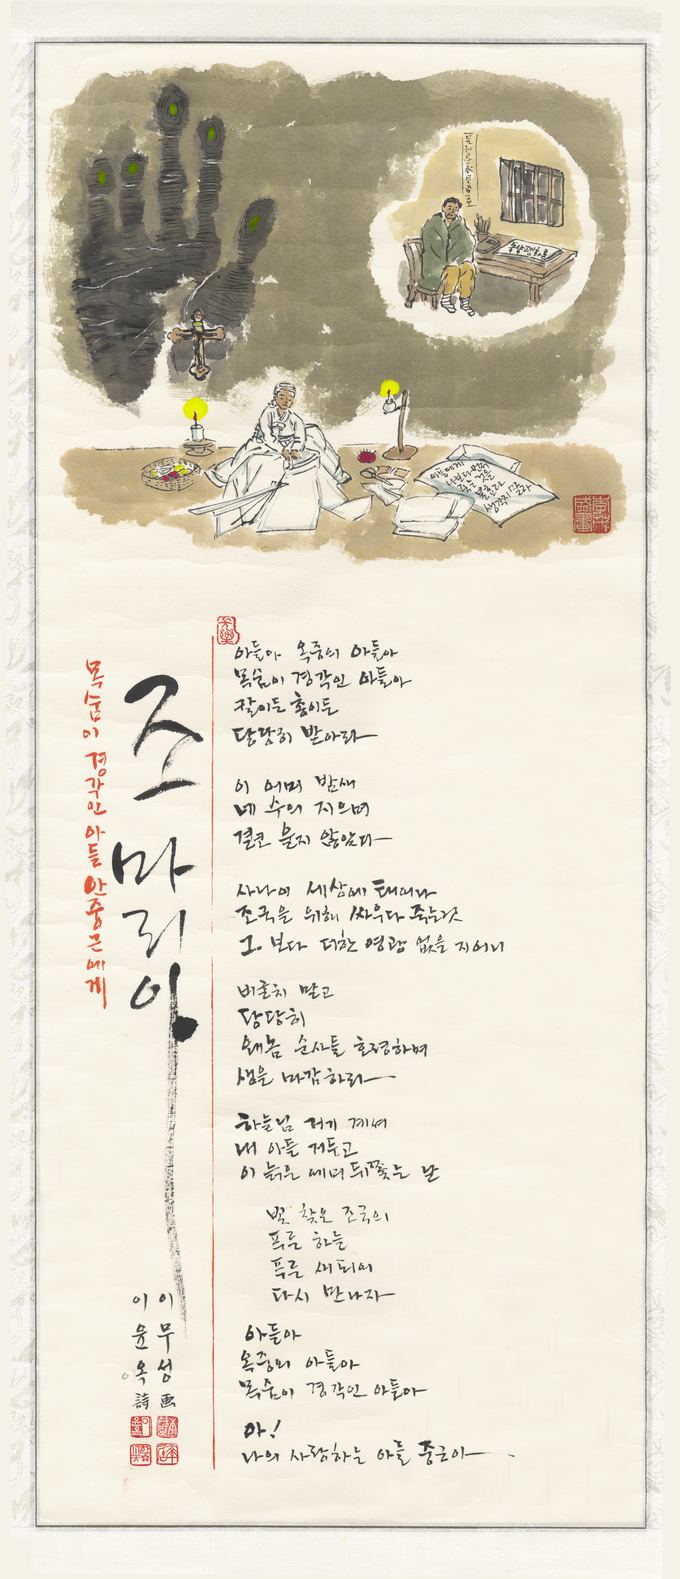 동양평화론
아들에게
목숨이 경각인 아들 안중근에게
조 마리아
이윤옥 詩
이무성 画
아들아 옥중의 아들아
목숨이 경각인 아들아
칼이든 총이든
당당히 받아라
이 어미 밤새
네 수의 지으며
결코 울지 않았다
사나이 세상에 태어나
조국을 위해 싸우다 죽는 것
그 보다 더한 영광 없을 지어니
비굴치 말고
당당히
왜놈 순사들 호령하며
생을 마감하라
하늘님 거기 계셔
내 아들 거두고
이 늙은 에미 뒤쫓는 날
빛 찾은 조국의
푸른 하늘
푸른 새 되어
다시 만나자
아들아
옥중의 아들아
목숨이 경각인 아들아
아!
나의 사랑하는 아들 중근아